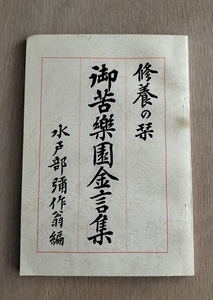 修養の栞
御苦樂園金言集
水戸部彌作翁編